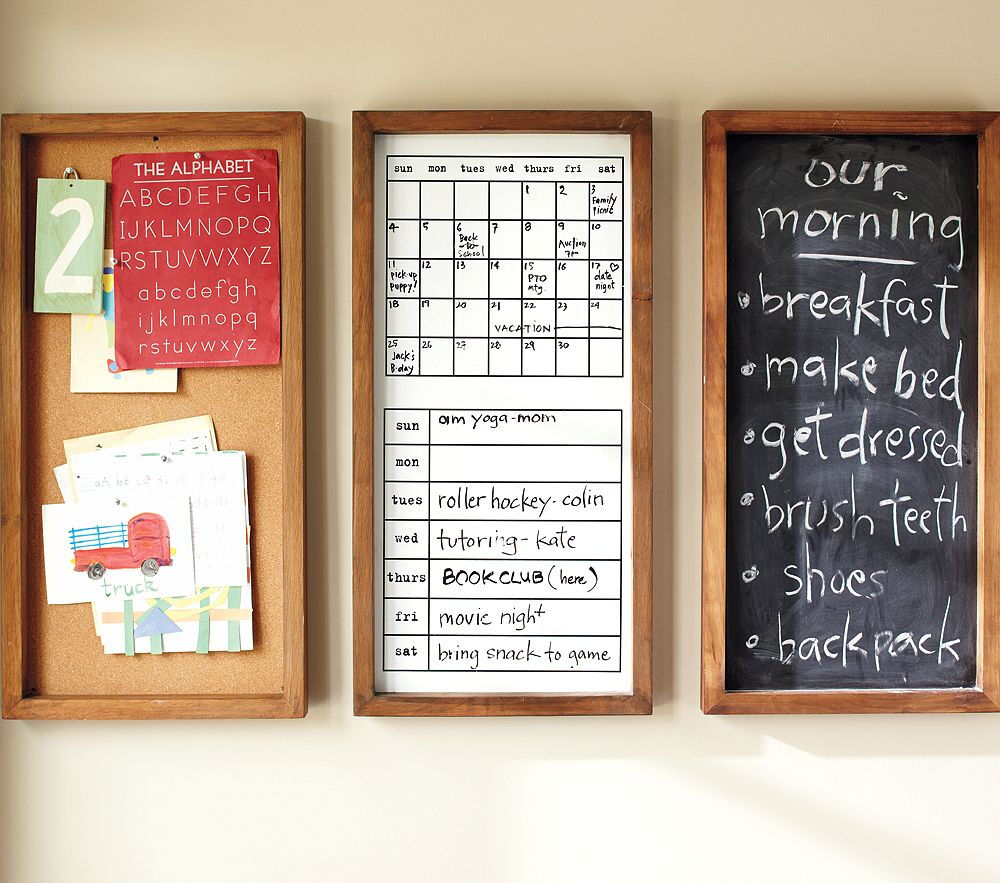 2
THE ALPHABET
ABCDEFGH
IJKLMNOPQ
RSTUVWXYZ
abcdefgh
ijklmnopq
rstuvwxyz
truck
sun mon tues wed thurs fri sat
1 2 3
Family
Picnic
4 5 6 7 8 9 10
Back
-to-
School
Auction
7pm
11 12 13 14 15 16 17
pick-up
puppy!
PTO
mtg.
date
night
18 19 20 21 22 23 24
VACATION
25 26 27 28 29 30
Jack's
B-day
sun am yoga-mom
mon
tues roller hockey-colin
wed tutoring-kate
thurs BOOK CLUB (here)
fri movie night
sat bring snack to game
our
morning
• breakfast
• make bed
• get dressed
• brush teeth
• shoes
• backpack